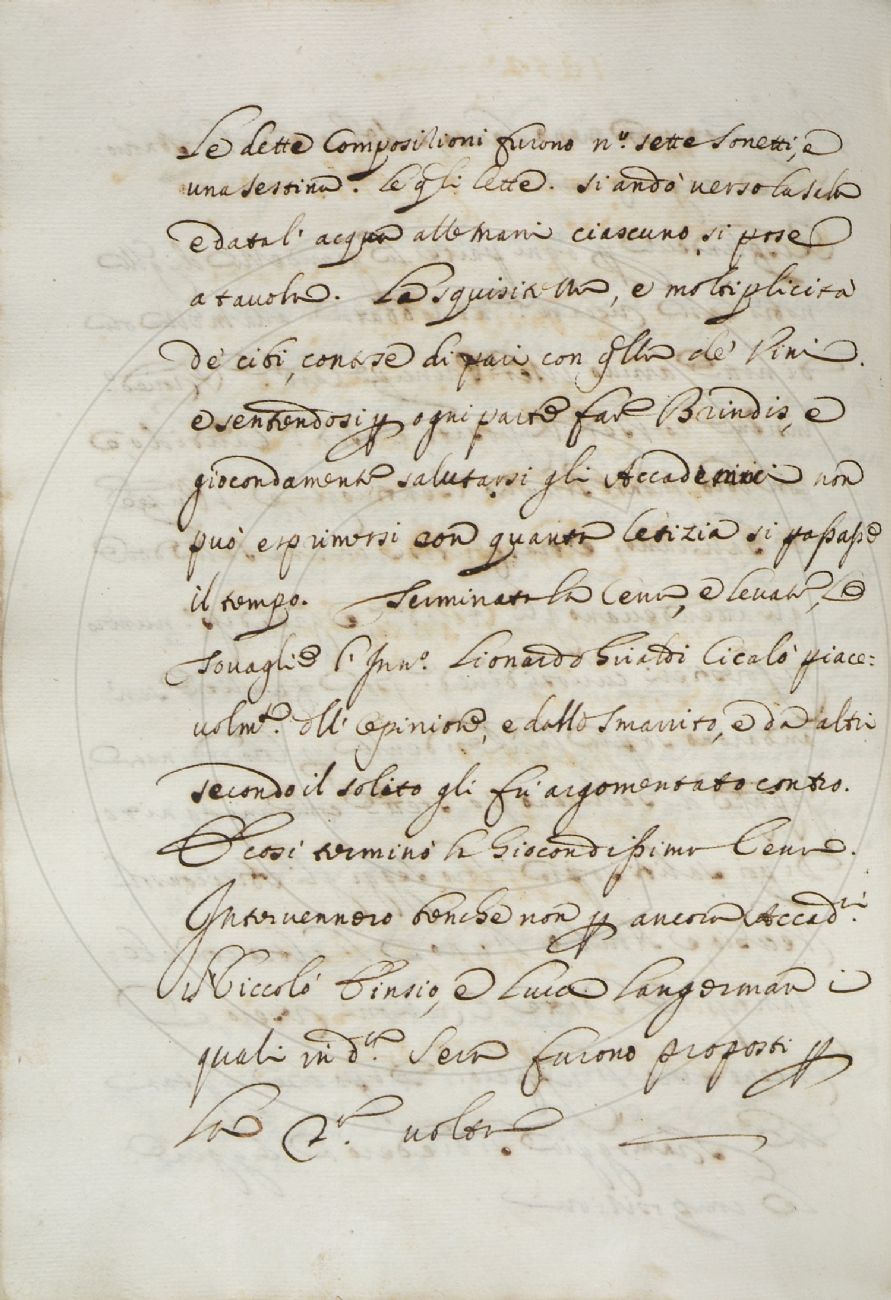 Le dette Composizioni furono n.º sette sonetti, e
una sestina. Le qli lette. si andò verso la sala
e data l'acqua alle mani ciascuno si pose
a tavola. La squisitezza, e moltiplicità
de' cibi, contese di pari con qlla de' Vini.
e sentendosi p ogni parte far Brindis, e
giocondamente salutarsi gli Accademici non
può esprimersi con quanta letizia si passasse
il tempo. Terminata la Cena, e levate le
Tovaglie l'Inn.º Lionardo Giraldi Cicalò piace=
volm.te dell'Opinione, e dallo Smarrito, e da altri
secondo il solito gli fu argomentato contro.
E così terminò la Giocondissima Cena.
Intervennero benche non p ancora Accad.ci
Niccolò Einsio, e Luca Langerman i
quali in d.ta Sera furono proposti p
La 2.a volta